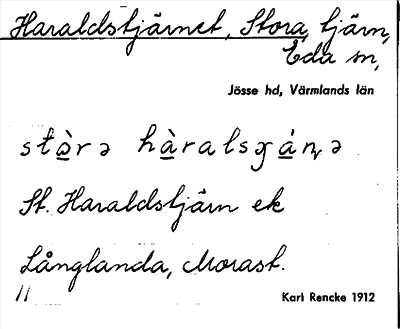 Haraldstjärnet, Stora, tjärn,
Eda sn,
Jösse hd, Värmlands län
stὰrə hὰralsɟáɳə
St. Haraldstjärn ek
Långlanda, Morast.
11
Karl Rencke 1912